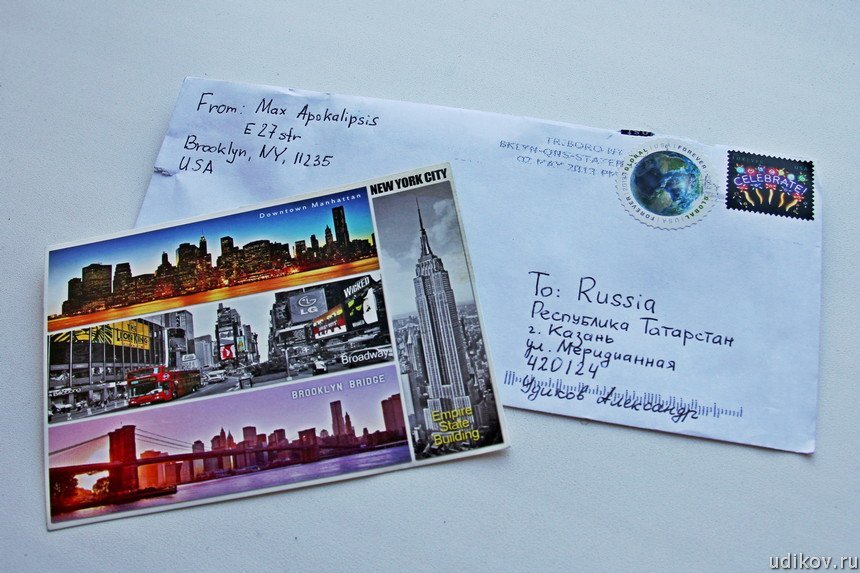 From: Max Apokalipsis
E 27 str
Brooklyn, NY, 11235
USA
TR. BORO NY
BKLYN-QNS-STATEN
02 MAY 2013 PM
GLOBAL USA FOREVER
CELEBRATE!
To: Russia
Республика Татарстан
г. Казань
ул. Меридианная
420124
Удиков Александр
NEW YORK CITY
Downtown Manhattan
THE LION KING
LG
WICKED
Broadway
BROOKLYN BRIDGE
Empire
State
Building
udikov.ru